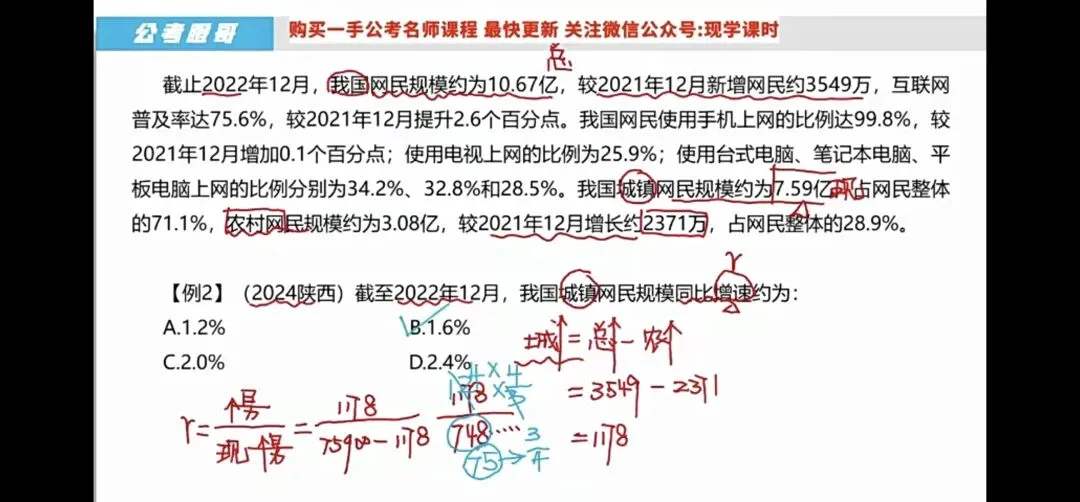 公考眼哥
购买一手公考名师课程 最快更新 关注微信公众号:现学课时
总
截止2022年12月，我国网民规模约为10.67亿，较2021年12月新增网民约3549万，互联网
普及率达75.6%，较2021年12月提升2.6个百分点。我国网民使用手机上网的比例达99.8%，较
2021年12月增加0.1个百分点；使用电视上网的比例为25.9%；使用台式电脑、笔记本电脑、平
板电脑上网的比例分别为34.2%、32.8%和28.5%。我国城镇网民规模约为7.59亿 现 占网民整体
的71.1%，农村网民规模约为3.08亿，较2021年12月增长约2371万，占网民整体的28.9%。
r
【例2】（2024陕西）截至2022年12月，我国城镇网民规模同比增速约为：
A.1.2%
B.1.6%
C.2.0%
D.2.4%
城↑=总↑-农↑
=3549-2371
=1178
r=个曾/现-个曾=1178/75900-1178
1178/748……
×4
×4/3
75→3/4